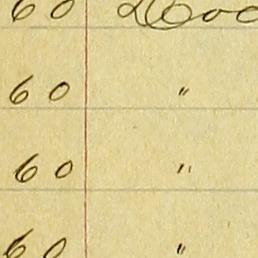 60
60 "
60 "
60 "